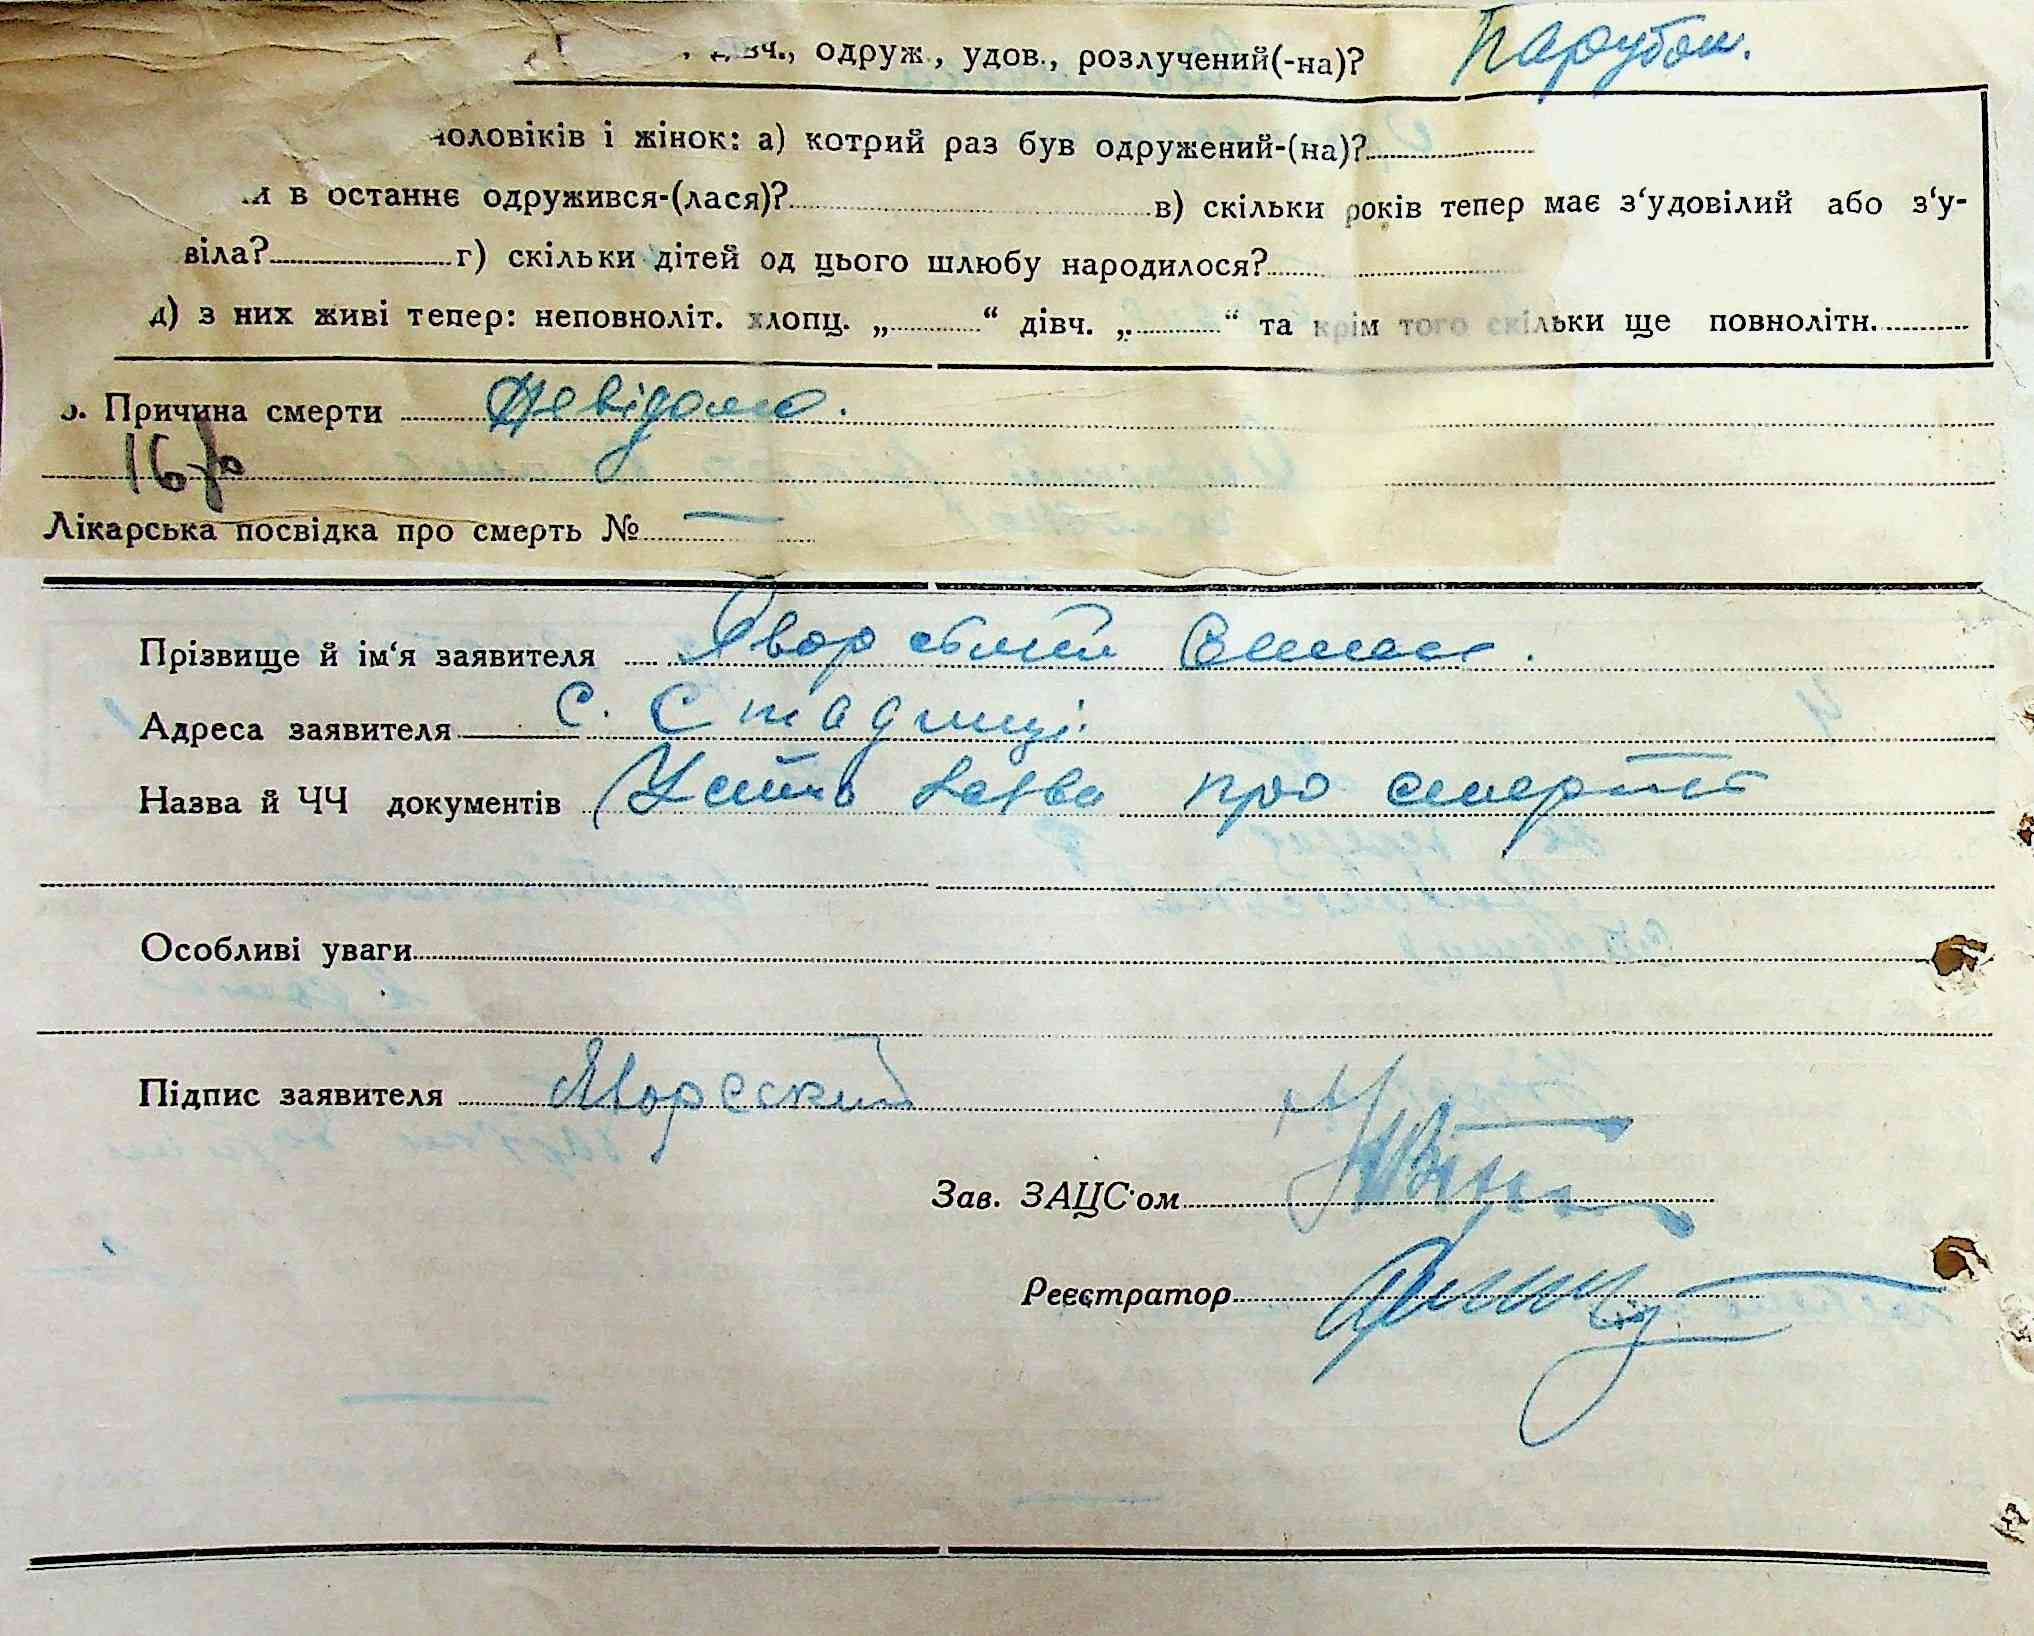 вч., одруж., удов., розлучений(-на)? Парубок.
чоловіків і жінок: а) котрий раз був одружений-(на)?
и в останнє одружився-(лася)? в) скільки років тепер має з‘удовілий або з‘у-
віла? г) скільки дітей од цього шлюбу народилося?
д) з них живі тепер: неповноліт. хлопц. „ “ дівч. „ “ та крім того скільки ще повнолітн.
Причина смерти Невідомо.
16
Лікарська посвідка про смерть № —
Прізвище й ім‘я заявителя Яворський
Адреса заявителя с. Стадниці.
Назва й ЧЧ документів Усна заява про смерть
Особливі уваги
Підпис заявителя Яворский
Зав. ЗАЦС‘ом
Реєстратор